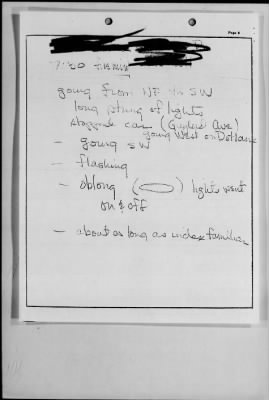 Page
7:20
going from NE to SW
long string of lights
stopped car (Ave)
going West on
- going SW
- flashing
- oblong ( ) lights went
on & off
- about as long as index